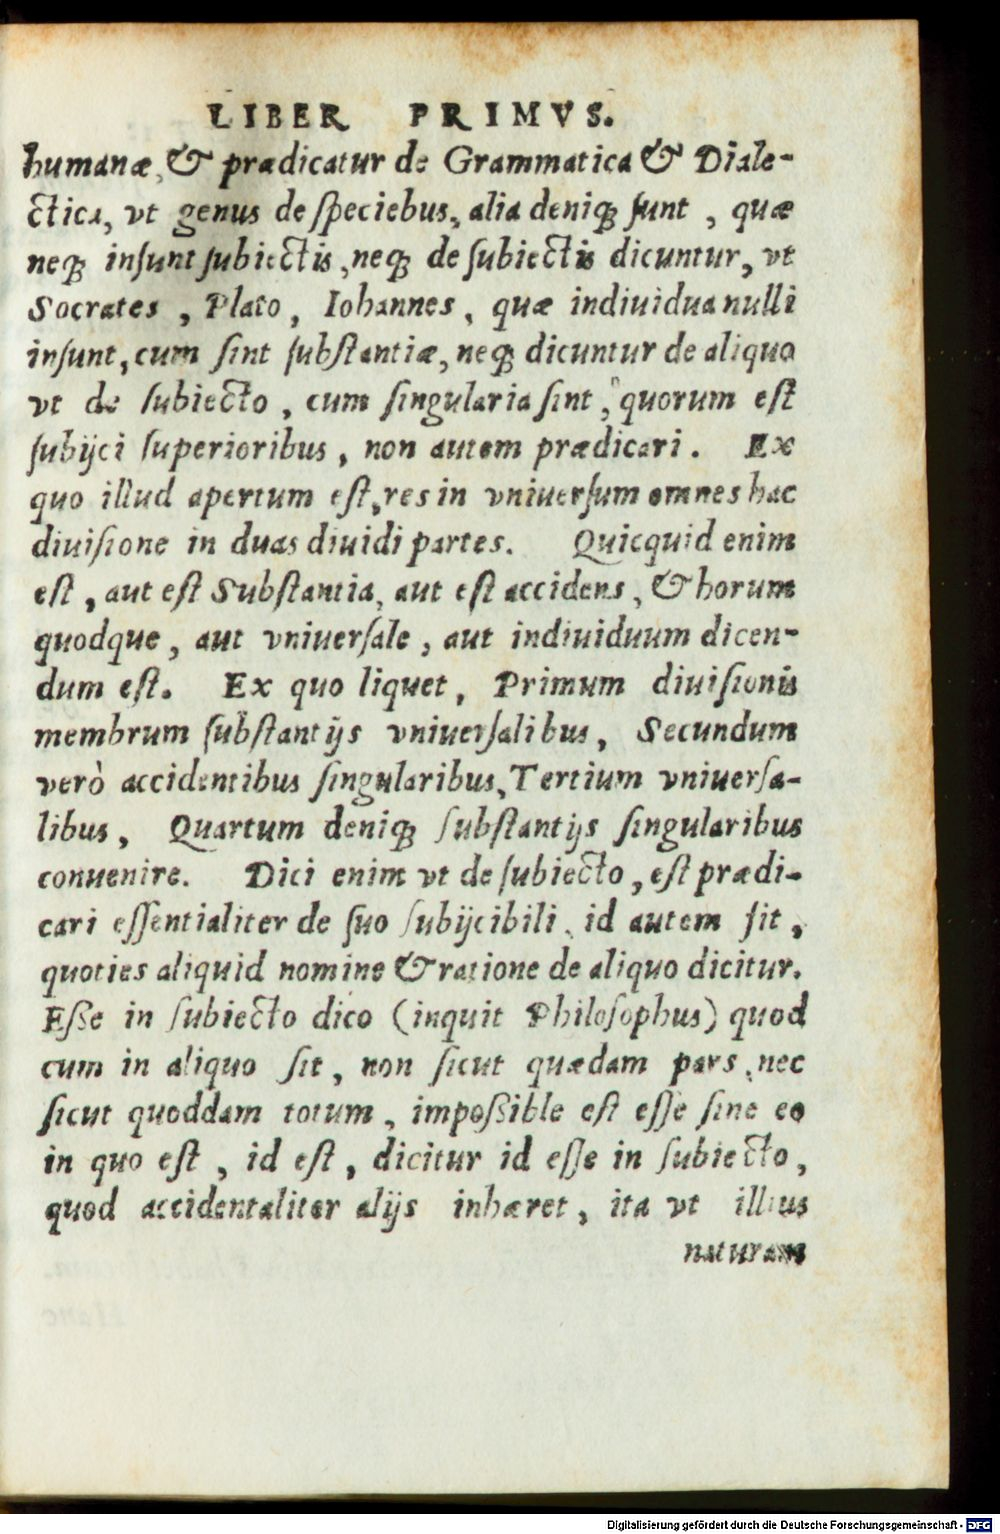 LIBER PRIMVS.
humanæ, & prædicatur de Grammatica & Diale-
ctica, vt genus de ſpeciebus, alia deniqꝫ ſunt, quæ
neqꝫ inſunt ſubiectis, neqꝫ de ſubiectis dicuntur, vt
Socrates, Plato, Iohannes, quæ indiuidua nulli
inſunt, cum ſint ſubſtantiæ, neqꝫ dicuntur de aliquo
vt de ſubiecto, cum ſingularia ſint, quorum eſt
ſubijci ſuperioribus, non autem prædicari. Ex
quo illud apertum eſt, res in vniuerſum omnes hac
diuiſione in duas diuidi partes. Quicquid enim
eſt, aut eſt Subſtantia, aut eſt accidens, & horum
quodque, aut vniuerſale, aut indiuiduum dicen-
dum eſt. Ex quo liquet, Primum diuiſionis
membrum ſubſtantijs vniuerſalibus, Secundum
verò accidentibus ſingularibus, Tertium vniuerſa-
libus, Quartum deniqꝫ ſubſtantijs ſingularibus
conuenire. Dici enim vt de ſubiecto, eſt prædi-
cari eſſentialiter de ſuo ſubijcibili, id autem fit,
quoties aliquid nomine & ratione de aliquo dicitur.
Eſſe in ſubiecto dico (inquit Philoſophus) quod
cum in aliquo ſit, non ſicut quædam pars, nec
ſicut quoddam totum, impoſſible eſt eſſe ſine eo
in quo eſt, id eſt, dicitur id eſſe in ſubiecto,
quod accidentaliter alijs inhæret, ita vt illius
naturam
Digitalisierung gefördert durch die Deutsche Forschungsgemeinschaft - DFG